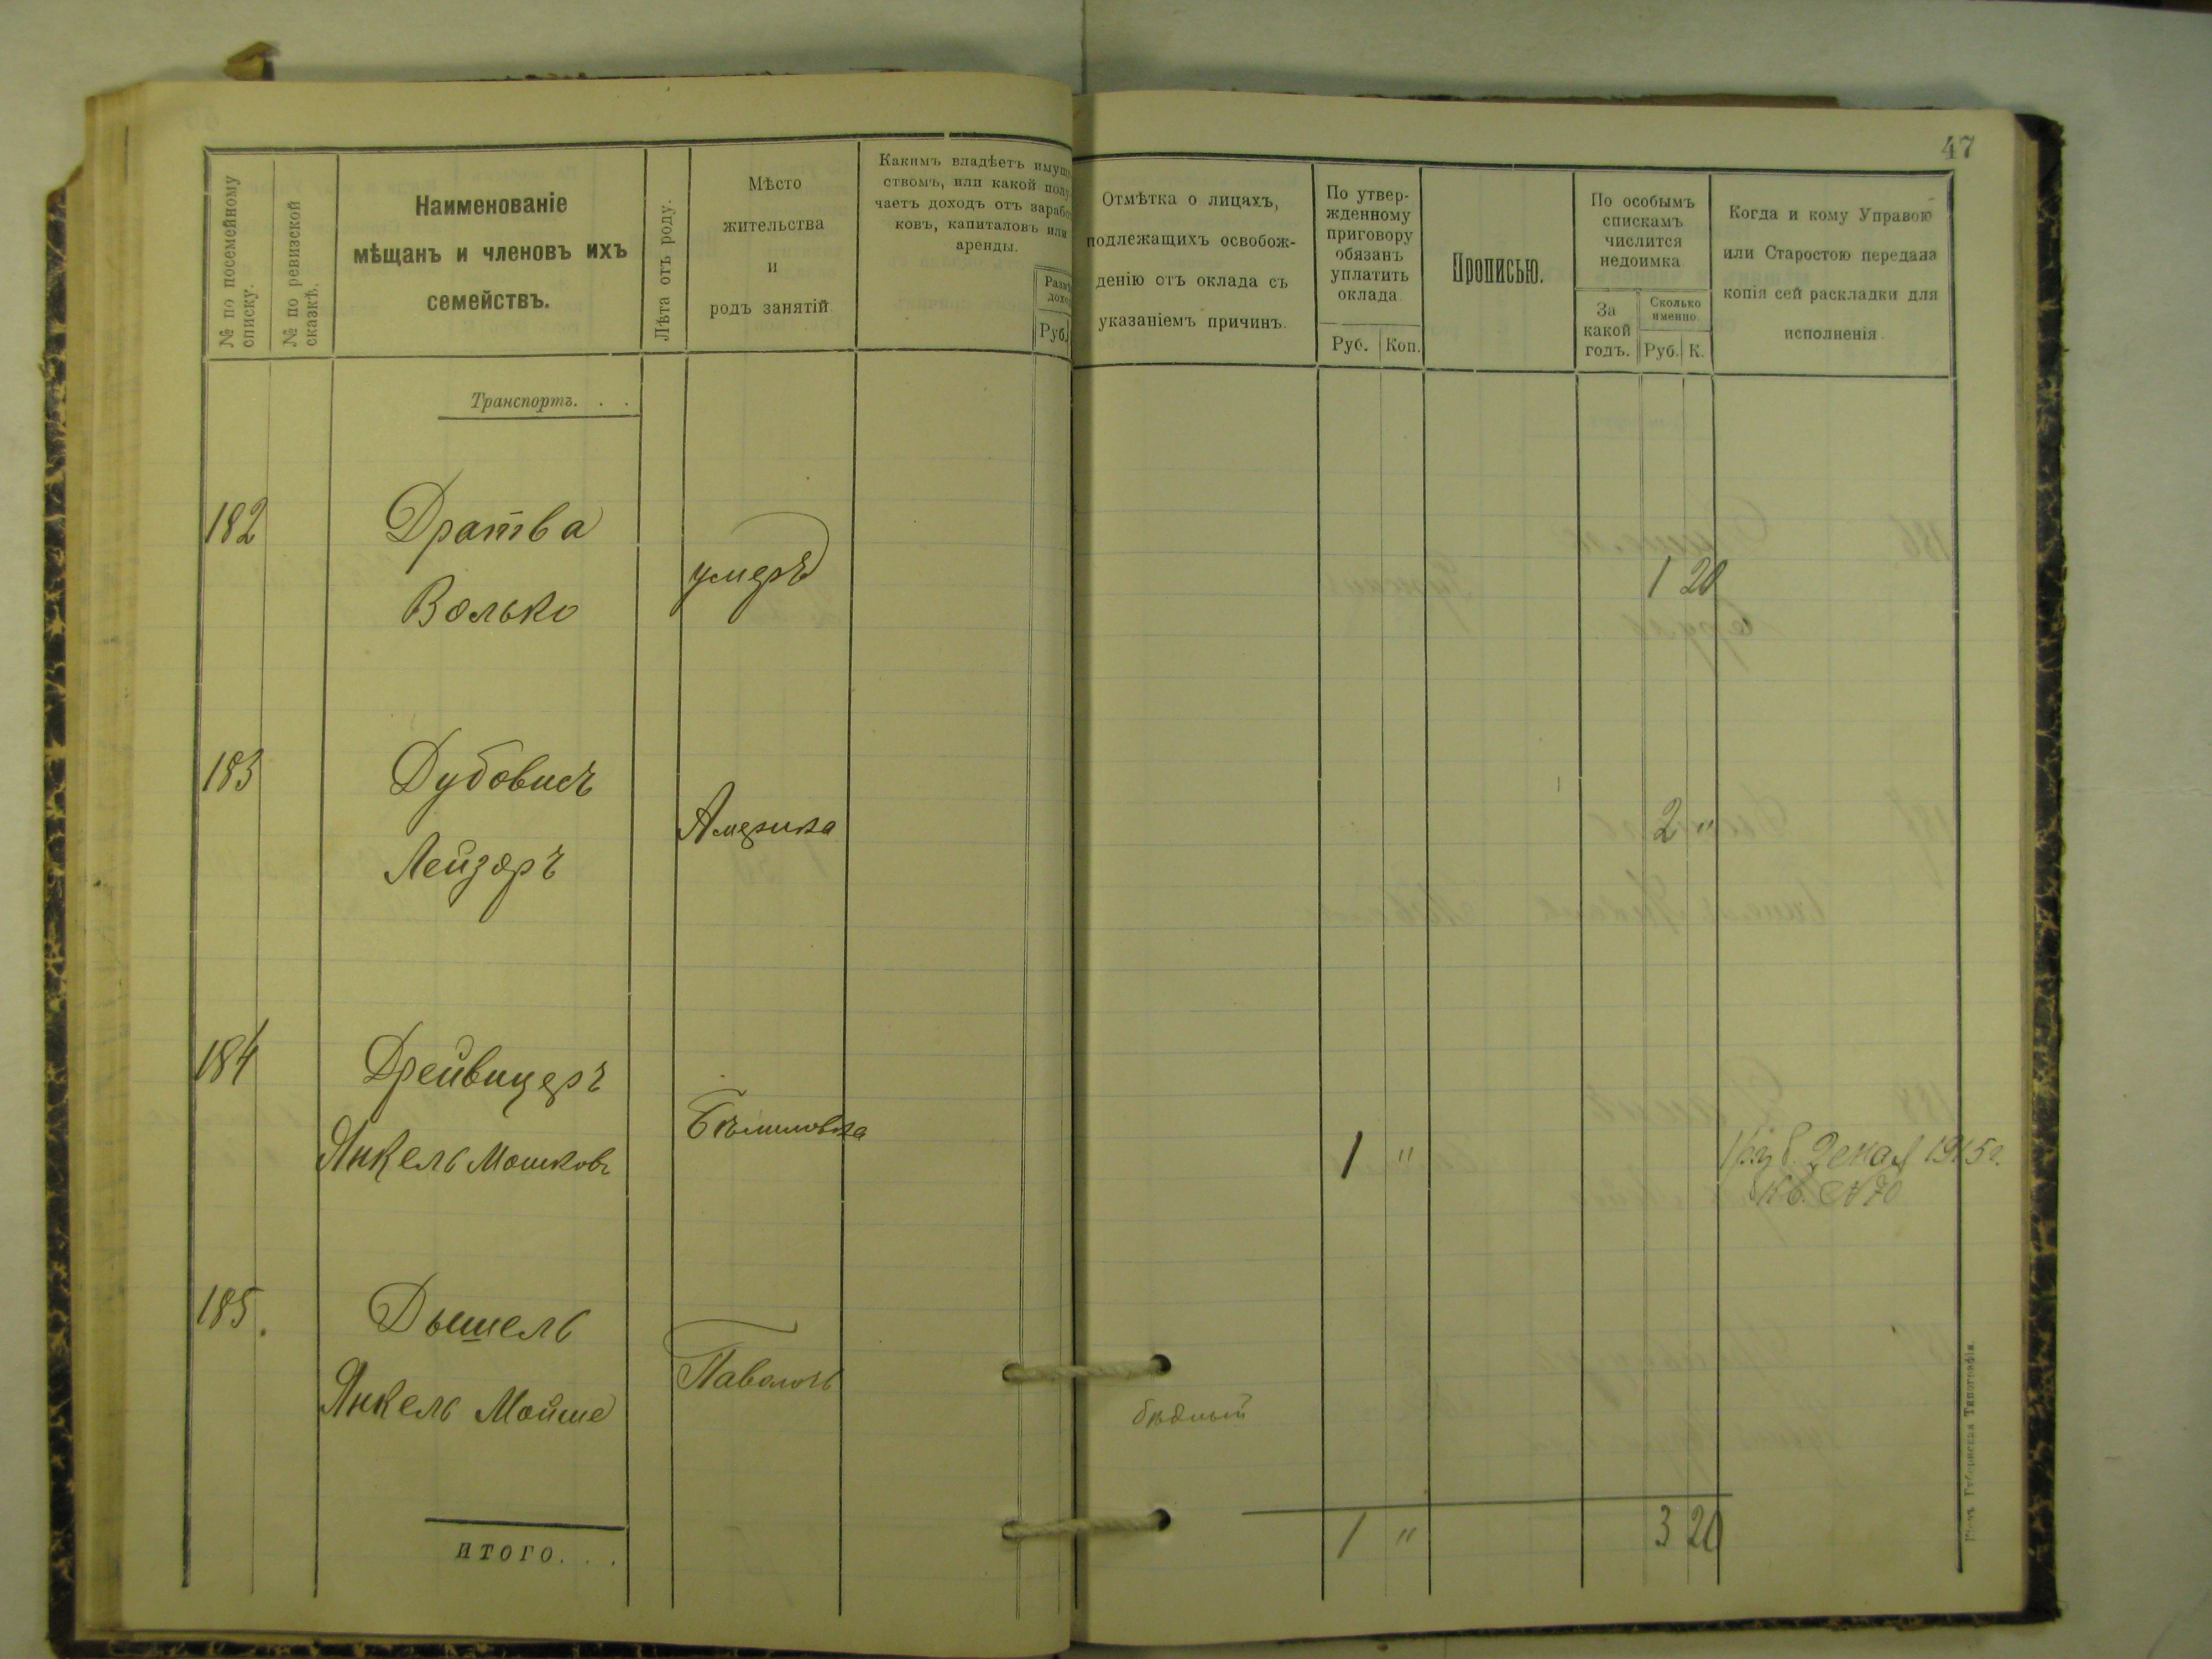 47
№ по посемейному
списку.
№ по ревизской
сказкѣ.
Наименованіе
мѣщанъ и членовъ ихъ
семействъ.
Лѣта отъ роду.
Мѣсто
жительства
и
родъ занятій
Какимъ владѣетъ
ствомъ, или какой
чаетъ доходъ отъ
ковъ, капиталовъ или
аренды.
Руб.
Отмѣтка о лицахъ,
подлежащихъ освобож-
денію отъ оклада съ
указаніемъ причинъ.
По утвер-
жденному
приговору
обязанъ
уплатить
оклада
Руб. Коп.
Прописью.
По особымъ
спискамъ
числится
недоимка
За
какой
годъ.
Сколько
именно.
Руб. К.
Когда и кому Управою
или Старостою передана
копія сей раскладки для
исполненія.
Транспортъ. . .
182 Дратва
Волько
умеръ
1 20
183 Дубовисъ
Лейзоръ
Америка
2 "
184 Дрейвицеръ
Янкель Мошковъ
1 "
1915 г.
Кв. №70
185. Дышель
Янкель Мойше
Паволочь
бѣдный
ИТОГО. . .
1 " 3 20
Губернская Типографія.